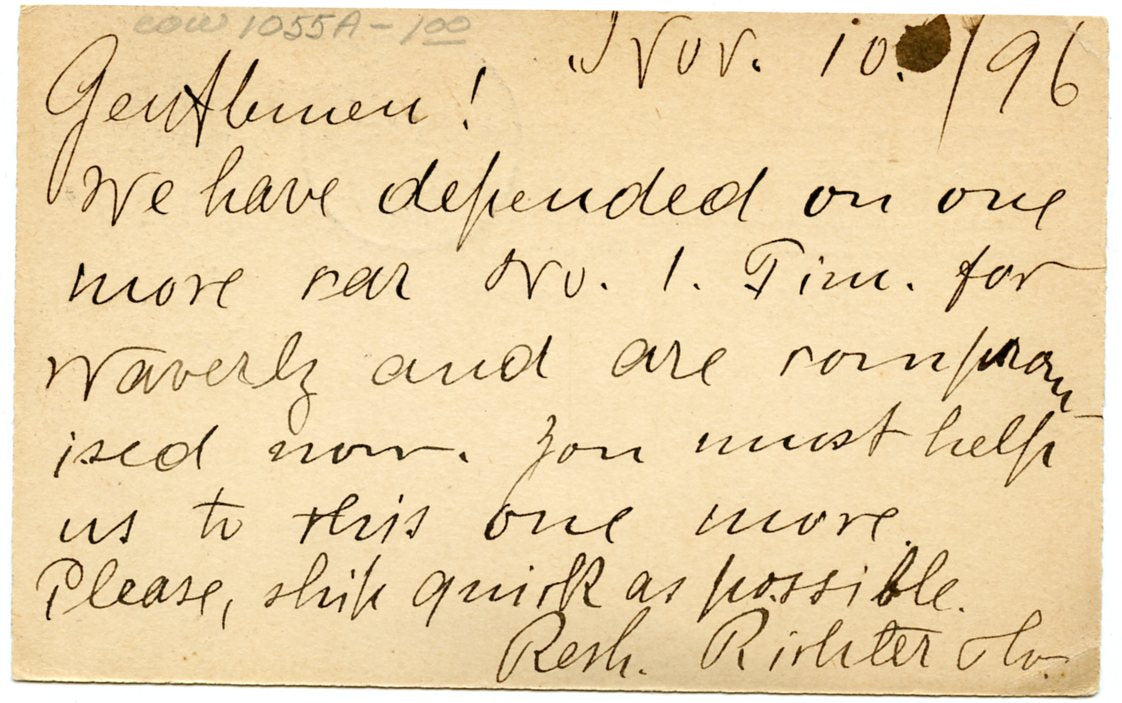 cow 1055A - 1 00
Nov. 10. /96
Gentlemen!
We have depended on one
more car No. 1. Tim. for
Waverly and are comprom-
ised now. You must help
us to this one more.
Please, ship quick as possible.
Resp. Richter